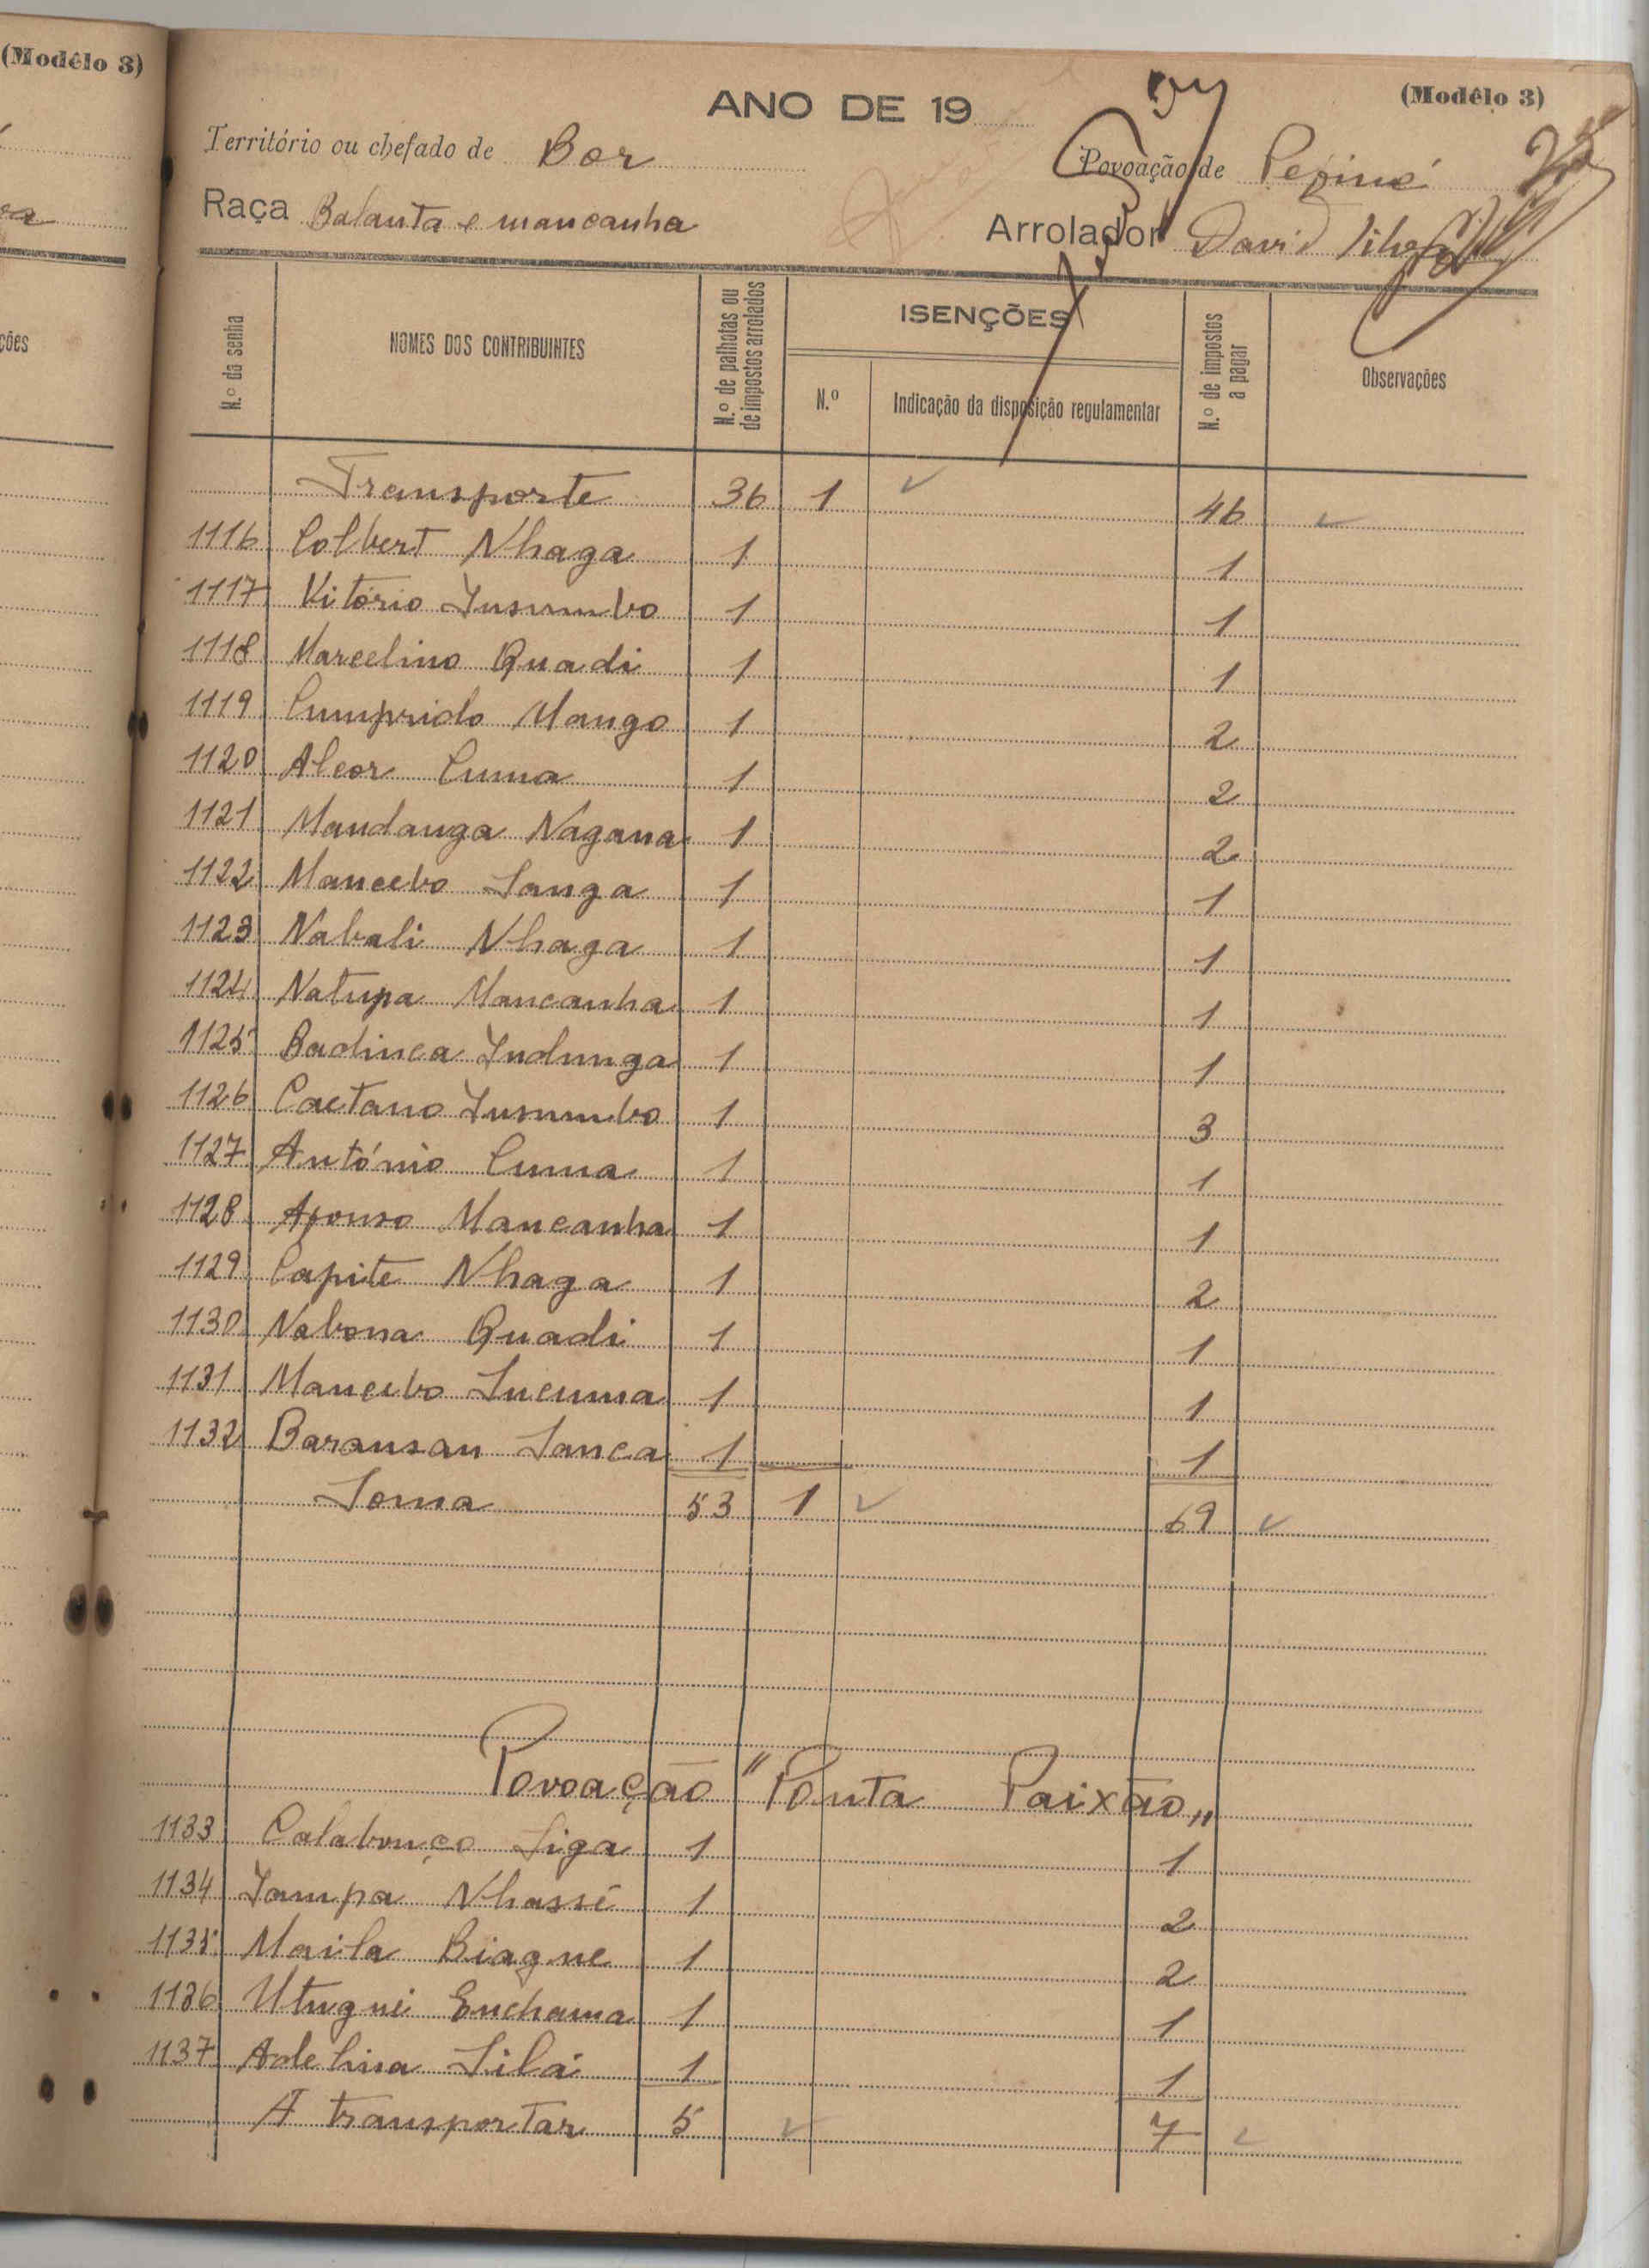 (Modêlo 3)
ções
(Modêlo 3)
ANO DE 19
Território ou chefado de Bor
Povoação de
Raça Balanta e mancanha
Arrolador David
N.º da senha
NOMES DOS CONTRIBUINTES
N.º de palhotas ou de impostos arrolados
ISENÇÕES
N.º
Indicação da disposição regulamentar
N.º de impostos a pagar
Observações
Transporte 36 1 ✓ 46 ✓
1116 Colbert Nhaga 1 1
1117 Vitório Insumbo 1 1
1118 Marcelino Quadi 1 1
1119 Cumprido Mango 1 2
1120 Alcor Cuma 1 2
1121 Mandanga Nagana 1 2
1122 Mancebo Sanga 1 1
1123 Nabali Nhaga 1 1
1124 Natupa Mancanha 1 1
1125 Badinca Indunga 1 1
1126 Caetano Insumbo 1 3
1127 António Cuma 1 1
1128 Afonso Mancanha 1 1
1129 Capite Nhaga 1 2
1130 Nabona Quadi 1 1
1131 Mancebo Incuma 1 1
1132 Baransan Sanca 1 1
Soma 53 1 ✓ 69 ✓
Povoação "Ponta Paixão"
1133 Calabouço Siga 1 1
1134 Iampa Nhassé 1 2
1135 Maila Biague 1 2
1136 Utugui Enchama 1 1
1137 Adelina Silá 1 1
A transportar 5 ✓ 7 ✓